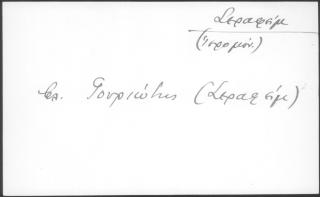 Σεραφείμ
(ἱερομόν.)
Βλ. Γουριώτης (Σεραφείμ)